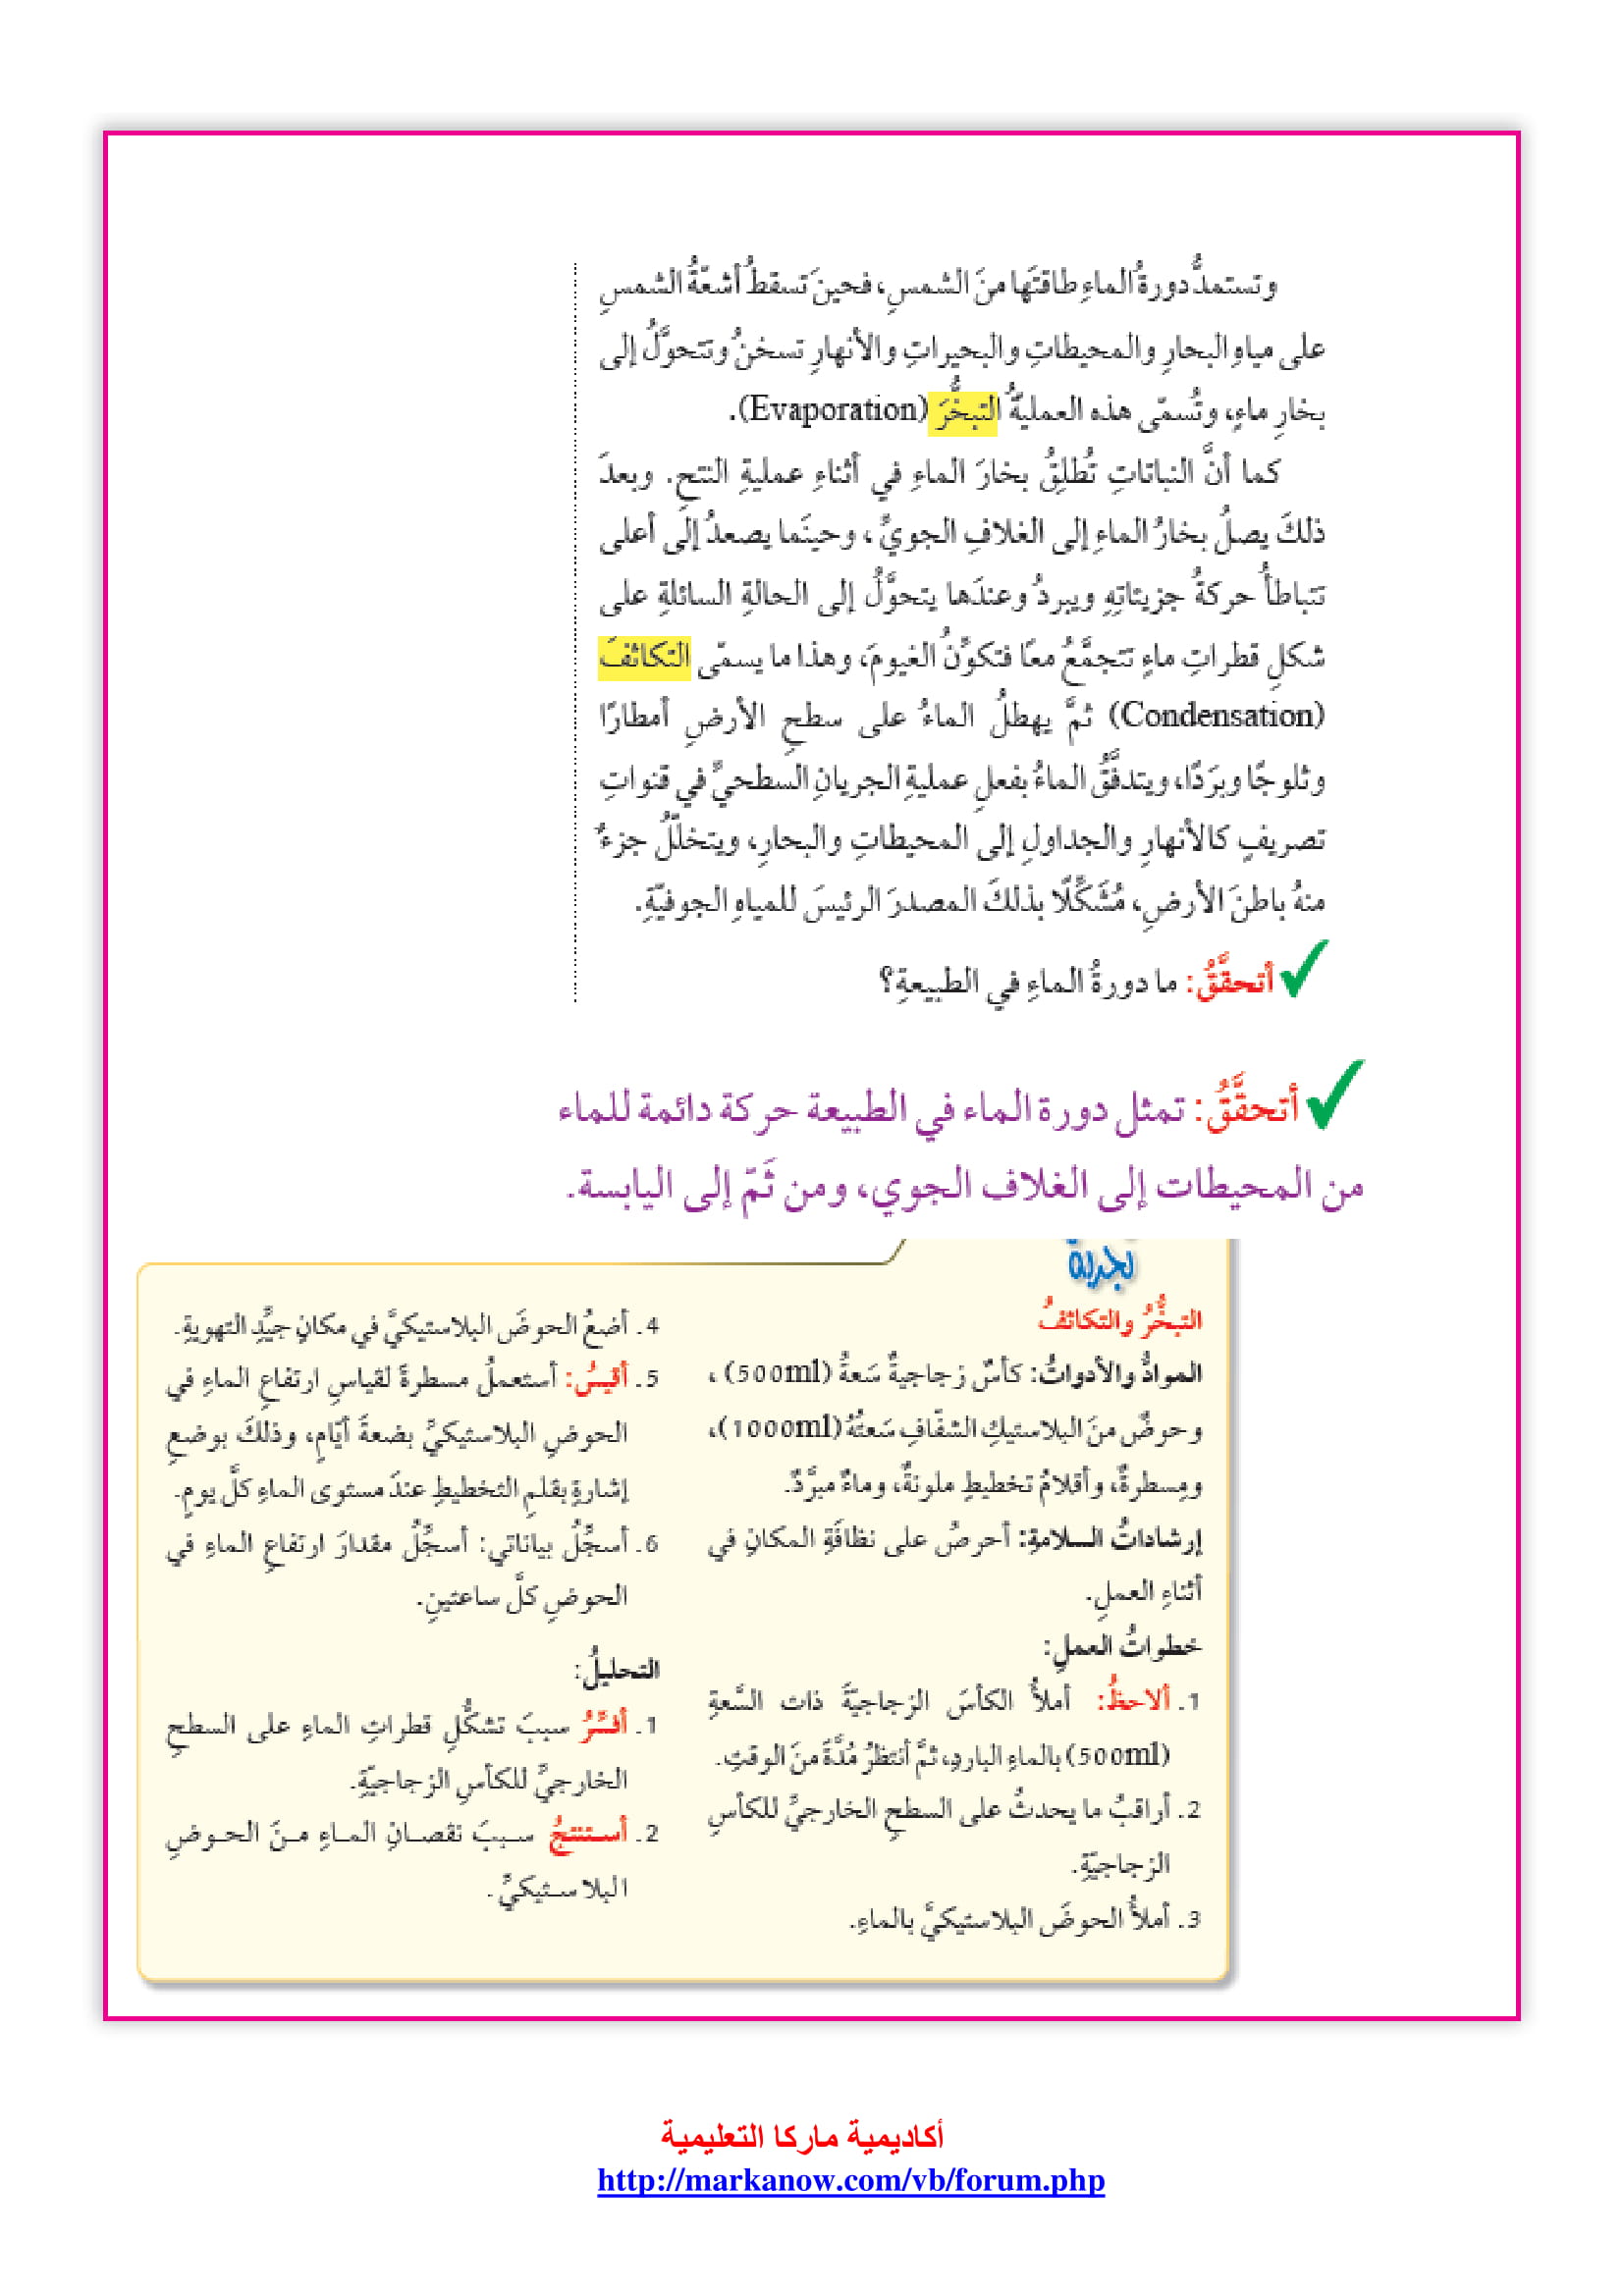 وتستمدُّ دورةُ الماءِ طاقتَها منَ الشمسِ، فحينَ تسقطُ أشعّةُ الشمسِ
على مياهِ البحارِ والمحيطاتِ والبحيراتِ والأنهارِ تسخنُ وتتحوَّلُ إلى
بخارِ ماءٍ، وتُسمّى هذه العمليةُ التبخُّرَ (Evaporation).
كما أنَّ النباتاتِ تُطلِقُ بخارَ الماءِ في أثناءِ عمليةِ النتحِ. وبعدَ
ذلكَ يصلُ بخارُ الماءِ إلى الغلافِ الجويِّ، وحينَما يصعدُ إلى أعلى
تتباطأُ حركةُ جزيئاتِهِ ويبردُ وعندَها يتحوَّلُ إلى الحالةِ السائلةِ على
شكلِ قطراتِ ماءٍ تتجمَّعُ معًا فتكوِّنُ الغيومَ، وهذا ما يسمّى التكاثفَ
(Condensation) ثمَّ يهطلُ الماءُ على سطحِ الأرضِ أمطارًا
وثلوجًا وبرَدًا، ويتدفَّقُ الماءُ بفعلِ عمليةِ الجريانِ السطحيِّ في قنواتِ
تصريفٍ كالأنهارِ والجداولِ إلى المحيطاتِ والبحارِ، ويتخلّلُ جزءٌ
منهُ باطنَ الأرضِ، مُشَكِّلًا بذلكَ المصدرَ الرئيسَ للمياهِ الجوفيّةِ.
أتحقَّقُ: ما دورةُ الماءِ في الطبيعةِ؟
أتحقَّقُ: تمثل دورة الماء في الطبيعة حركة دائمة للماء
من المحيطات إلى الغلاف الجوي، ومن ثَمّ إلى اليابسة.
تجربة
التبخُّرُ والتكاثفُ
الموادُّ والأدواتُ: كأسٌ زجاجيةٌ سَعةُ (500ml)،
وحوضٌ منَ البلاستيكِ الشفّافِ سَعتُهُ (1000ml)،
ومِسطرةٌ، وأقلامُ تخطيطٍ ملونةٌ، وماءٌ مبرَّدٌ.
إرشاداتُ السلامةِ: أحرصُ على نظافَةِ المكانِ في
أثناءِ العملِ.
خطواتُ العملِ:
1. ألاحظُ: أملأُ الكأسَ الزجاجيّةَ ذات السَّعةِ
(500ml) بالماءِ الباردِ، ثمَّ أنتظرُ مُدَّةً منَ الوقتِ.
2. أراقبُ ما يحدثُ على السطحِ الخارجيِّ للكأسِ
الزجاجيّةِ.
3. أملأُ الحوضَ البلاستيكيَّ بالماءِ.
4. أضعُ الحوضَ البلاستيكيَّ في مكانٍ جيِّدِ التهويةِ.
5. أقيسُ: أستعملُ مسطرةً لقياسِ ارتفاعِ الماءِ في
الحوضِ البلاستيكيِّ بضعةَ أيّامٍ، وذلكَ بوضعِ
إشارةٍ بقلمِ التخطيطِ عندَ مستوى الماءِ كلَّ يومٍ.
6. أسجِّلُ بياناتي: أسجِّلُ مقدارَ ارتفاعِ الماءِ في
الحوضِ كلَّ ساعتينِ.
التحليلُ:
1. أفسِّرُ سببَ تشكُّلِ قطراتِ الماءِ على السطحِ
الخارجيِّ للكأسِ الزجاجيّةِ.
2. أستنتجُ سببَ نقصانِ الماءِ منَ الحوضِ
البلاستيكيِّ.
أكاديمية ماركا التعليمية
http://markanow.com/vb/forum.php